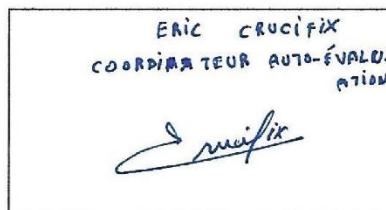 ERIC CRUCIFIX
COORDINATEUR AUTO-ÉVALU-
ATION
Crucifix